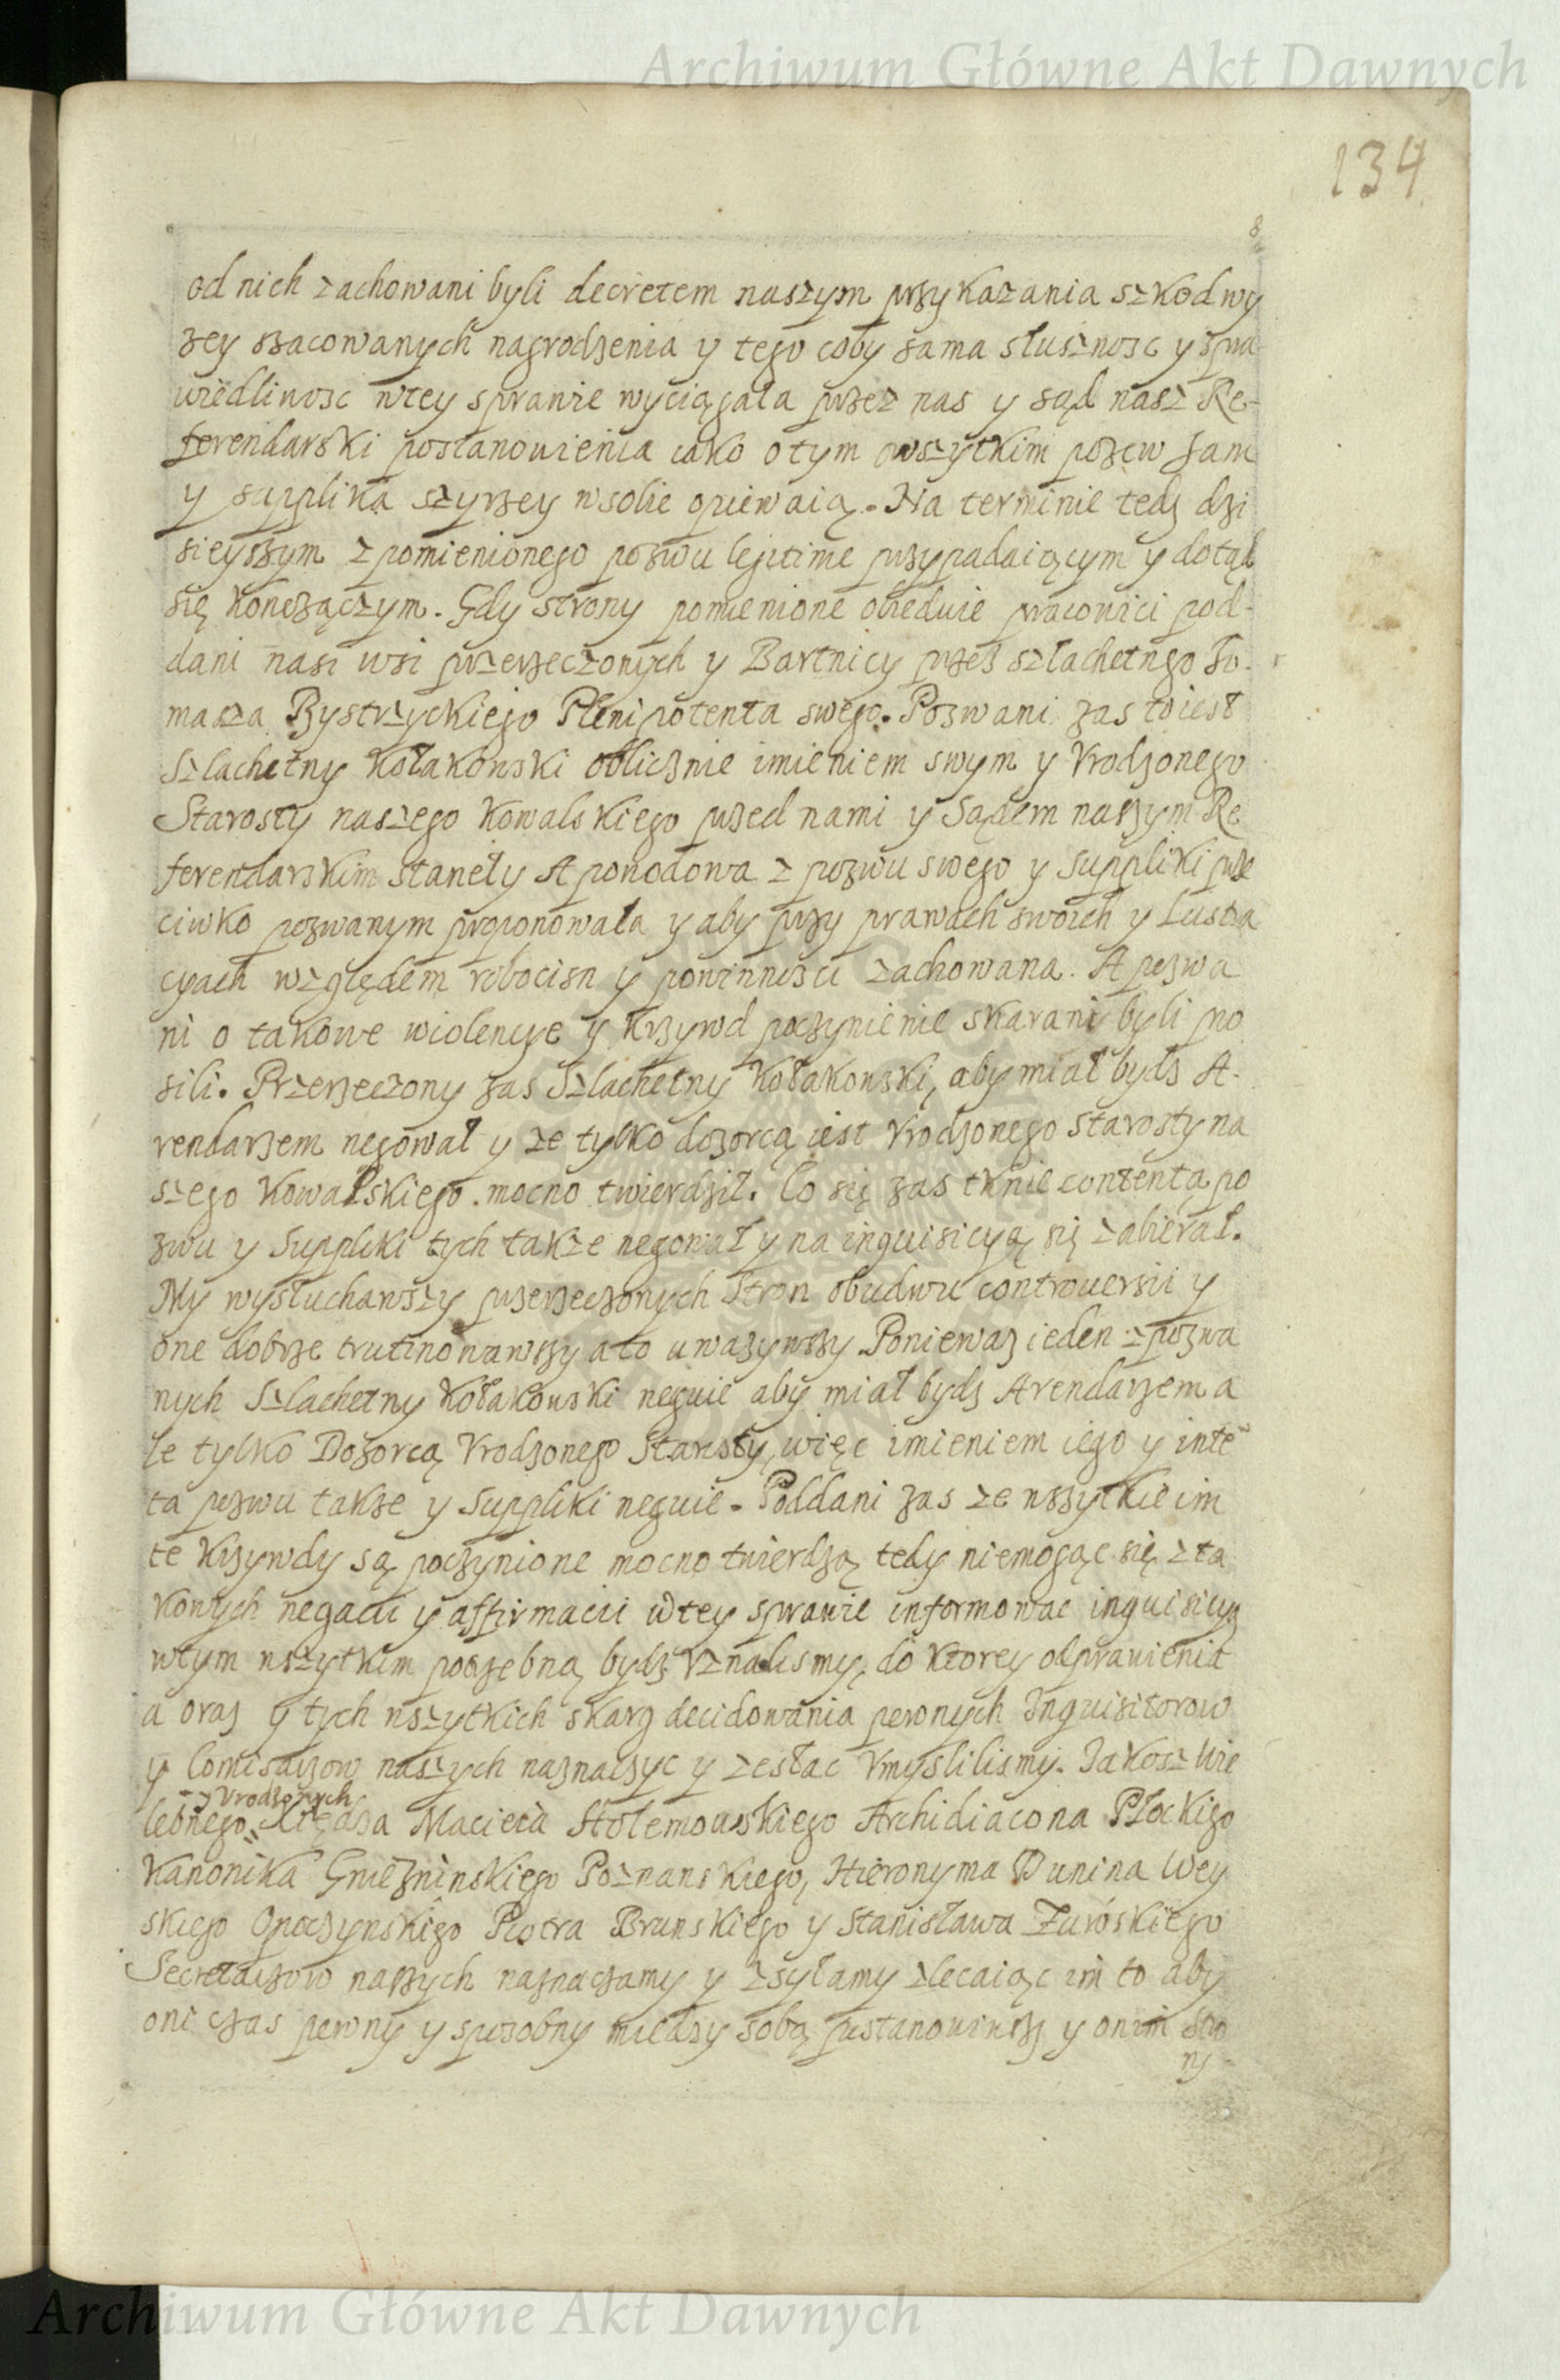 Archiwum Główne Akt Dawnych
134
8
od nich zachowani byli decretem naszym przykazania szkod wy
zey szacowanych nagrodzenia y tego coby sama słusznosc y spra
wiedlinosc wtey sprawie wyciągała przez nas y sąd nasz Re-
ferendarski postanowienia iako otym owszytkim pozew sam
y supplika szyrzey wsobie opiewaią. Na terminie tedy dzi
sieyszym z pomienionego pozwu legitime przypadaiącym y dotąd
się konczączym. Gdy strony pomienione obiedwie pracowici pod-
dani nasi wsi przerzeczonych y Bartnicy przez szlachetnego To-
masza Bystrzyckiego Plenipotenta swego. Pozwani zas to iest
Szlachetny Kołakowski oblicznie imieniem swym y Vrodzonego
Starosty naszego Kowalskiego przed nami y Sądem naszym Re
ferendarskim stanęły A powodowa z pozwu swego y Suppliki prze
ciwko pozwanym proponowała y aby przy prawach swoich y Lustra
cyach względem robocizn y powinnosci zachowana. A pozwa
ni o takowe wiolencye y krzywd poczynienie skarani byli pro
sili. Przerzeczony zas Szlachetny Kołakowski, aby miał bydz A-
rendarzem negował y ze tylko dozorcą iest Vrodzonego starosty na
szego Kowalskiego. mocno twierdził. Co się zas tknie contenta po
zwu y Suppliki tych takze negował y na inquisicyą się zabierał.
My wysłuchawszy przerzeczonych Stron obudwu controuersii y
one dobrze trutinowawszy a to uwazywszy Poniewaz ieden z pozwa
nych Szlachetny Kołakowski neguie aby miał bydz Arendarzem a
le tylko Dozorcą Vrodzonego Starosty, więc imieniem iego y inte
ta pozwu takze y Suppliki neguie. Poddani zas ze wszytkie im
te krzywdy są poczynione mocno twierdzą tedy niemogąc się z ta
kowych negacii y affirmacii w tey sprawie informowac inquisicyą
wtym wszytkim potrzebną bydz Vznalismy, do ktorey odprawienia
a oraz y tych wszytkich skarg decidowania pewnych Inquisitorow
y Comisarzow naszych naznaczyc y zesłac Vmyslilismy. Jakosz Wie
y Vrodzonych
lebnego Xiędza Macieia Stolemowskiego Archidiacona Płockigo
Kanonika Gniezninskiego Poznanskiego, Hieronyma Dunina Wey
skiego Opoczynskigo Piotra Brunskiego y Stanisława Zuroskiego
Secretarzow naszych naznaczamy y zsyłamy zlecaiąc im to aby
oni czas pewny y sposobny miedzy sobą postanowiwszy y onim Stro
ny
Archiwum Główne Akt Dawnych